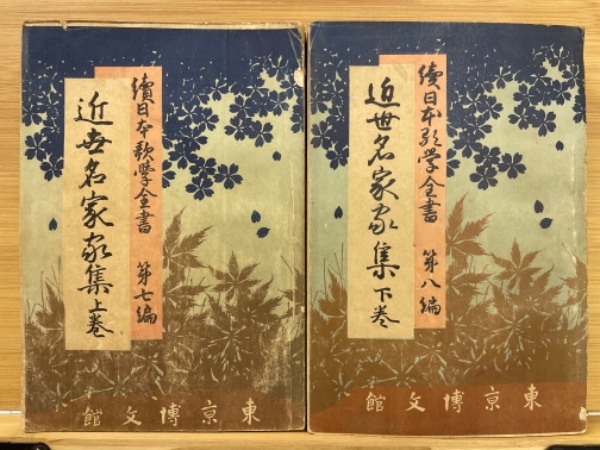 續日本歌學全書 第七編
近世名家家集上巻
東亰博文館
續日本歌学全書 第八編
近世名家家集下巻
東亰博文館